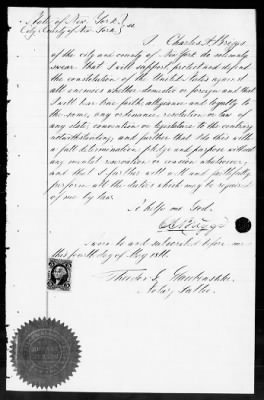 State of New York }
City & County of New York } ss
I Charles F. Briggs
of the city and county of New York do solemnly
swear that I will support, protect and defend
the constitution of the United States against
all enemies whether domestic or foreign and that
I will bear true faith, allegiance and loyalty to
the same, any ordinance, resolution or law of
any state, convention or legislature to the contrary
notwithstanding, and further that I do this with
a full determination, pledge and purpose without
any mental reservation or evasion whatsoever;
and that I further will well and faithfully
perform all the duties which may be required
of me by law.
So help me God.
Briggs
Sworn to and subscribed before me
this fourth day of May
Notary Public